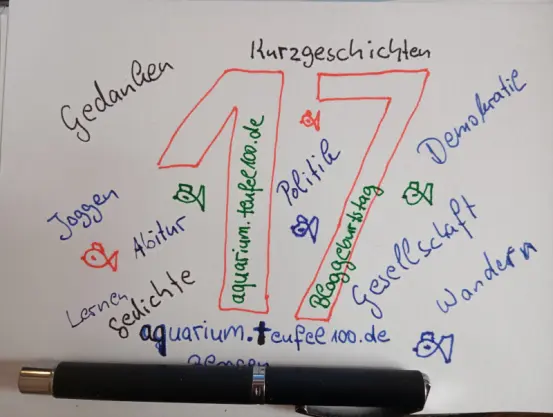 Kurzgeschichten
Gedanken
17
Demokratie
aquarium.teufel100.de
Politik
Joggen
Abitur
Bloggeburtstag
Gesellschaft
Wandern
Lernen
Gedichte
aquarium.teufel100.de